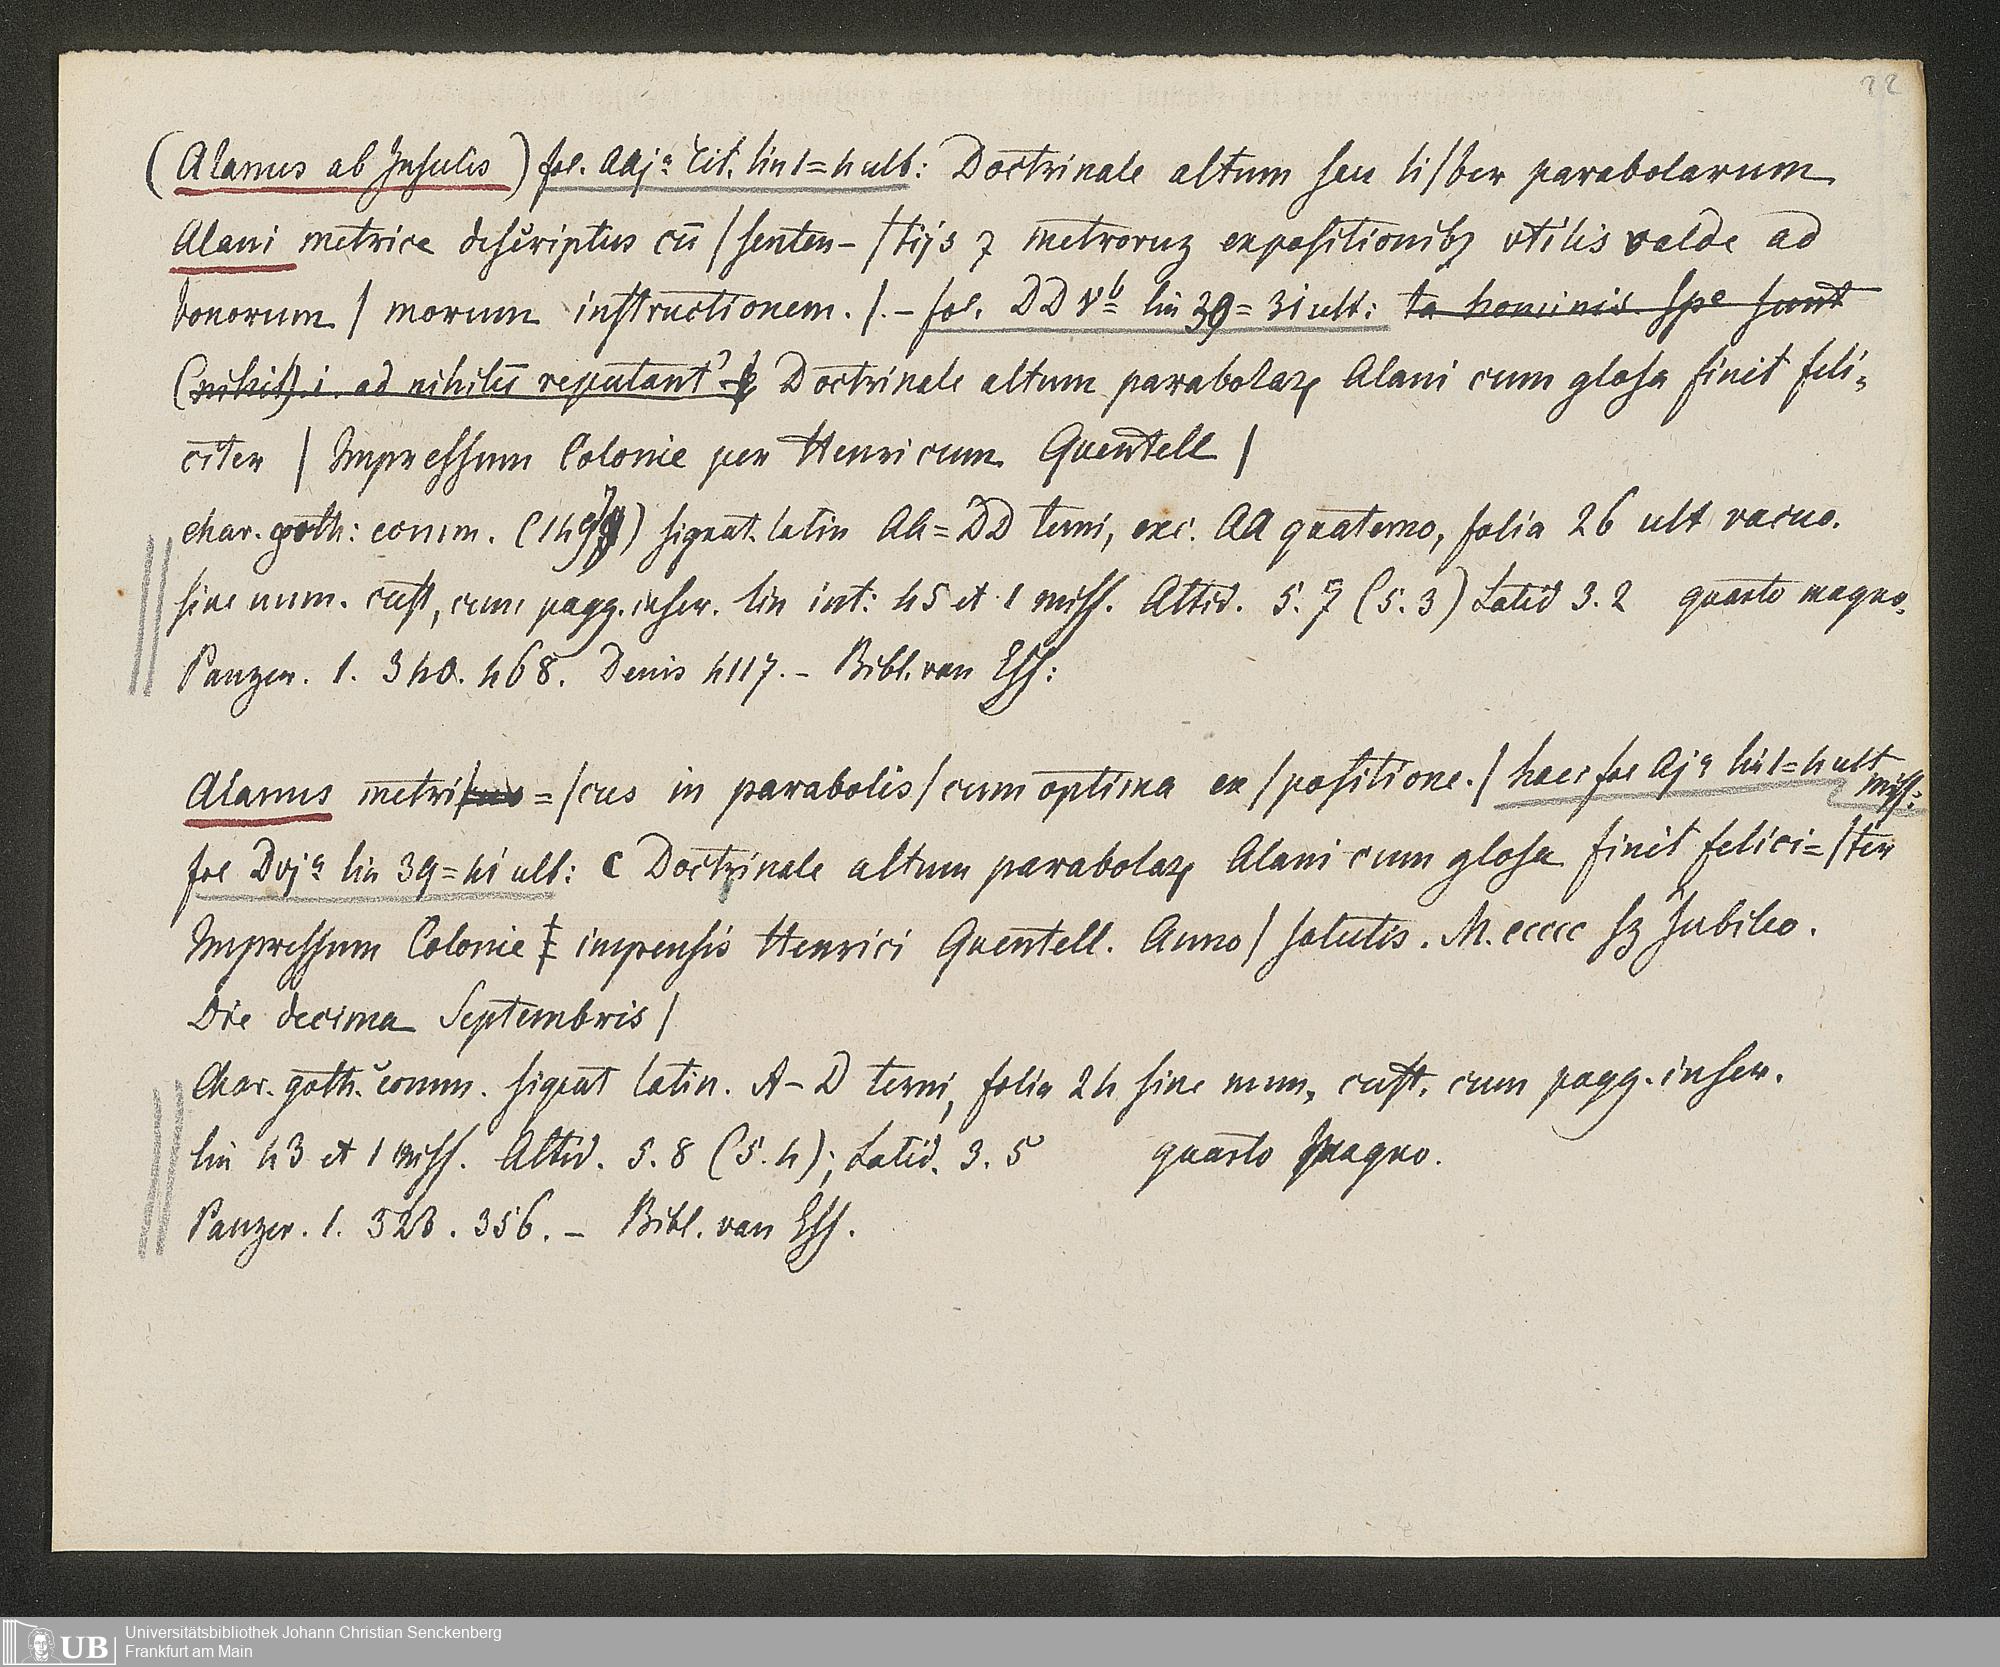 22
(Alanus ab Insulis) fol. AAjᵃ tit. lin 1=4 ult: Doctrinale altum seu li/ber parabolarum
Alani metrice descriptus cū /senten-/tijs ⁊ metroruʒ expositionibʒ vtilis valde ad
bonorum / morum instructionem. /. – fol. DD vᵇ lin 39=31 ult: ta hominis spe sunt
(nihil) .i. ad nihilū reputant' Doctrinale altum parabolaꝝ Alani cum glosa finit feli=
citer / Impressum Colonie per Henricum Quentell /
char. goth: comm. (1497) signat. latin AA=DD terni, exc. AA quaterno, folia 26 ult vacuo.
sine num. cust, cum pagg. inscr. lin int: 45 et 1 miss. Altid. 5.7 (5.3) Latid 3.2 quarto magno.
Panzer. 1. 340. 468. Denis 4117. – Bibl. van Ess:
Alanus metri=/cus in parabolis/ cum optima ex/positione. / haec fol Ajᵃ lin 1=4 ult
miss:
fol Dvjᵃ lin 39=41 ult: C Doctrinale altum parabolaꝝ Alani cum glosa finit felici=/ter
Impressum Colonie impensis Henrici Quentell. Anno / salutis. M.ccccc sʒ Jubileo.
Die decima Septembris /
Char. goth. comm. signat latin. A–D terni, folia 24 sine num, cust. cum pagg. inscr.
lin 43 et 1 miss. Altid. 5.8 (5.4); Latid. 3.5 quarto magno.
Panzer. 1. 328. 356. – Bibl. van Ess.
UB
Universitätsbibliothek Johann Christian Senckenberg
Frankfurt am Main